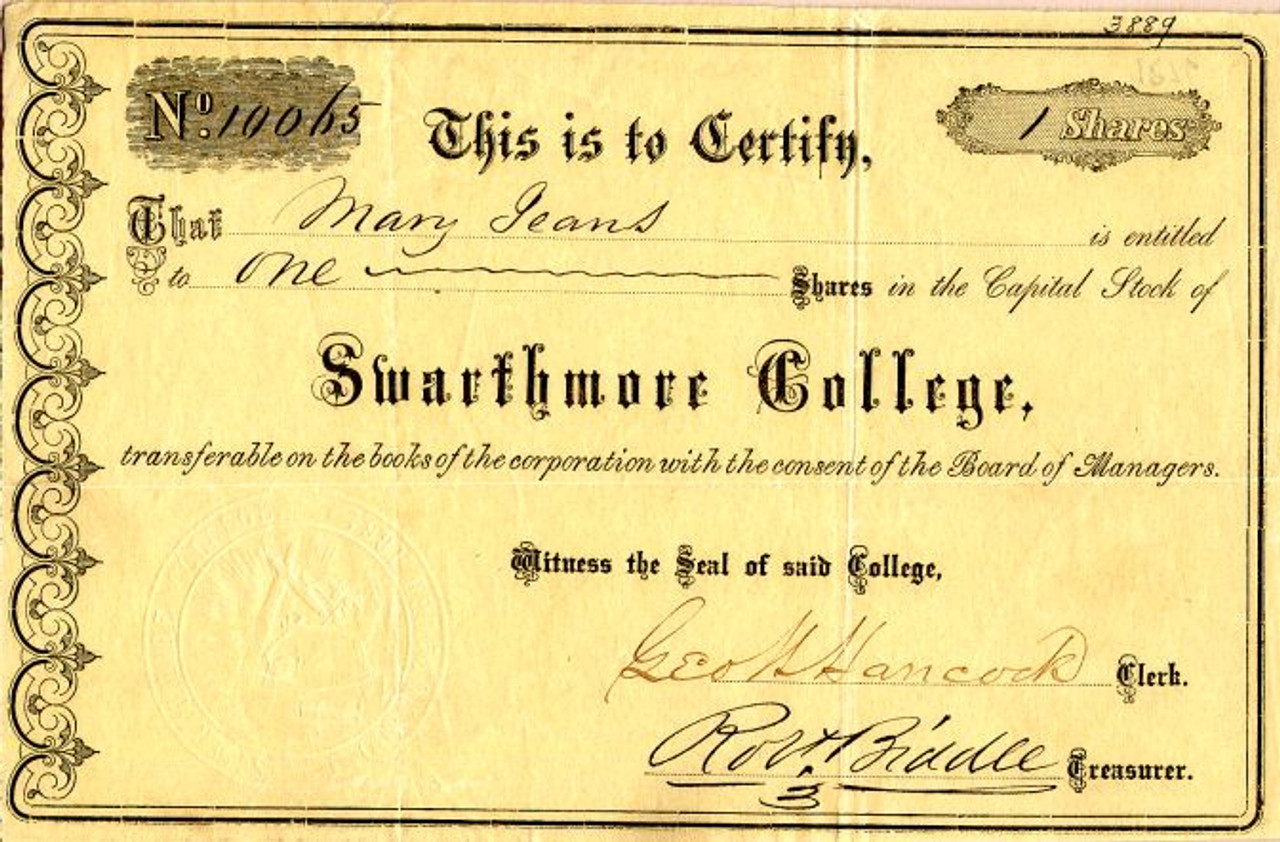 3889
No. 10065
This is to Certify,
1 Shares
That Mary Jeans is entitled
to one Shares in the Capital Stock of
Swarthmore College,
transferable on the books of the corporation with the consent of the Board of Managers.
Witness the Seal of said College,
Geo H Hancock Clerk.
Robt Biddle Treasurer.